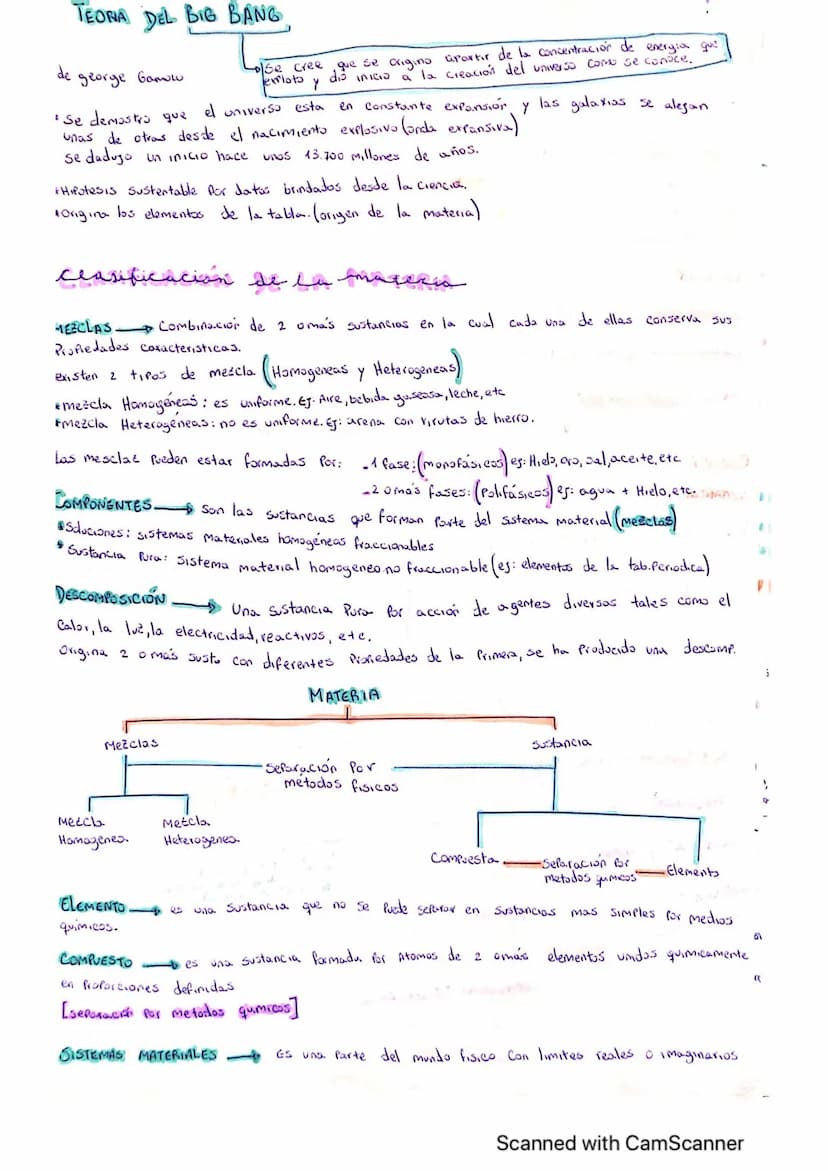 TEORIA DEL BIG BANG
Se cree que se origino apartir de la concentración de energia que
exploto y dió inicio a la creación del universo como se conoce.
de george Gamow
Se demostro que el universo esta en constante expansión y las galaxias se alejan
unas de otras desde el nacimiento explosivo (onda expansiva)
Se dedujo un inicio hace unos 13.700 millones de años.
Hipotesis sustentable por datos brindados desde la ciencia.
Origina los elementos de la tabla. (origen de la materia)
Clasificación de la materia
MEZCLAS → Combinación de 2 o más sustancias en la cual cada una de ellas conserva sus
Propiedades caracteristicas.
existen 2 tipos de mezcla (Homogeneas y Heterogeneas)
mezcla Homogéneas: es uniforme. Ej: Aire, bebida gaseosa, leche, etc
mezcla Heterogéneas: no es uniforme. Ej: arena con virutas de hierro.
Las mesclas pueden estar formadas por: -1 fase: (monofásicos) ej: Hielo, oro, sal, aceite, etc
-2 o más fases: (Polifásicos) ej: agua + Hielo, etc.
COMPONENTES → Son las sustancias que forman parte del sistema material (mezclas)
Soluciones: sistemas materiales homogéneas fraccionables
Sustancia Pura: sistema material homogeneo no fraccionable (ej: elementos de la tab. Periodica)
DESCOMPOSICIÓN → Una sustancia pura por acción de agentes diversos tales como el
Calor, la luz, la electricidad, reactivos, etc.
Origina 2 o más sust. con diferentes propiedades de la primera, se ha producido una descomp.
MATERIA
Mezclas Sustancia
Separación Por
metodos fisicos
Mezcla Mezcla
Homogenea. Heterogenea.
Compuesta Separación por Elemento
metodos quimicos
ELEMENTO → es una sustancia que no se puede separar en sustancias mas simples por medios
quimicos.
COMPUESTO → es una sustancia formada por atomos de 2 o más elementos unidos quimicamente
en proporciones definidas
[separación por metodos quimicos]
SISTEMAS MATERIALES → Es una parte del mundo fisico con limites reales o imaginarios
Scanned with CamScanner